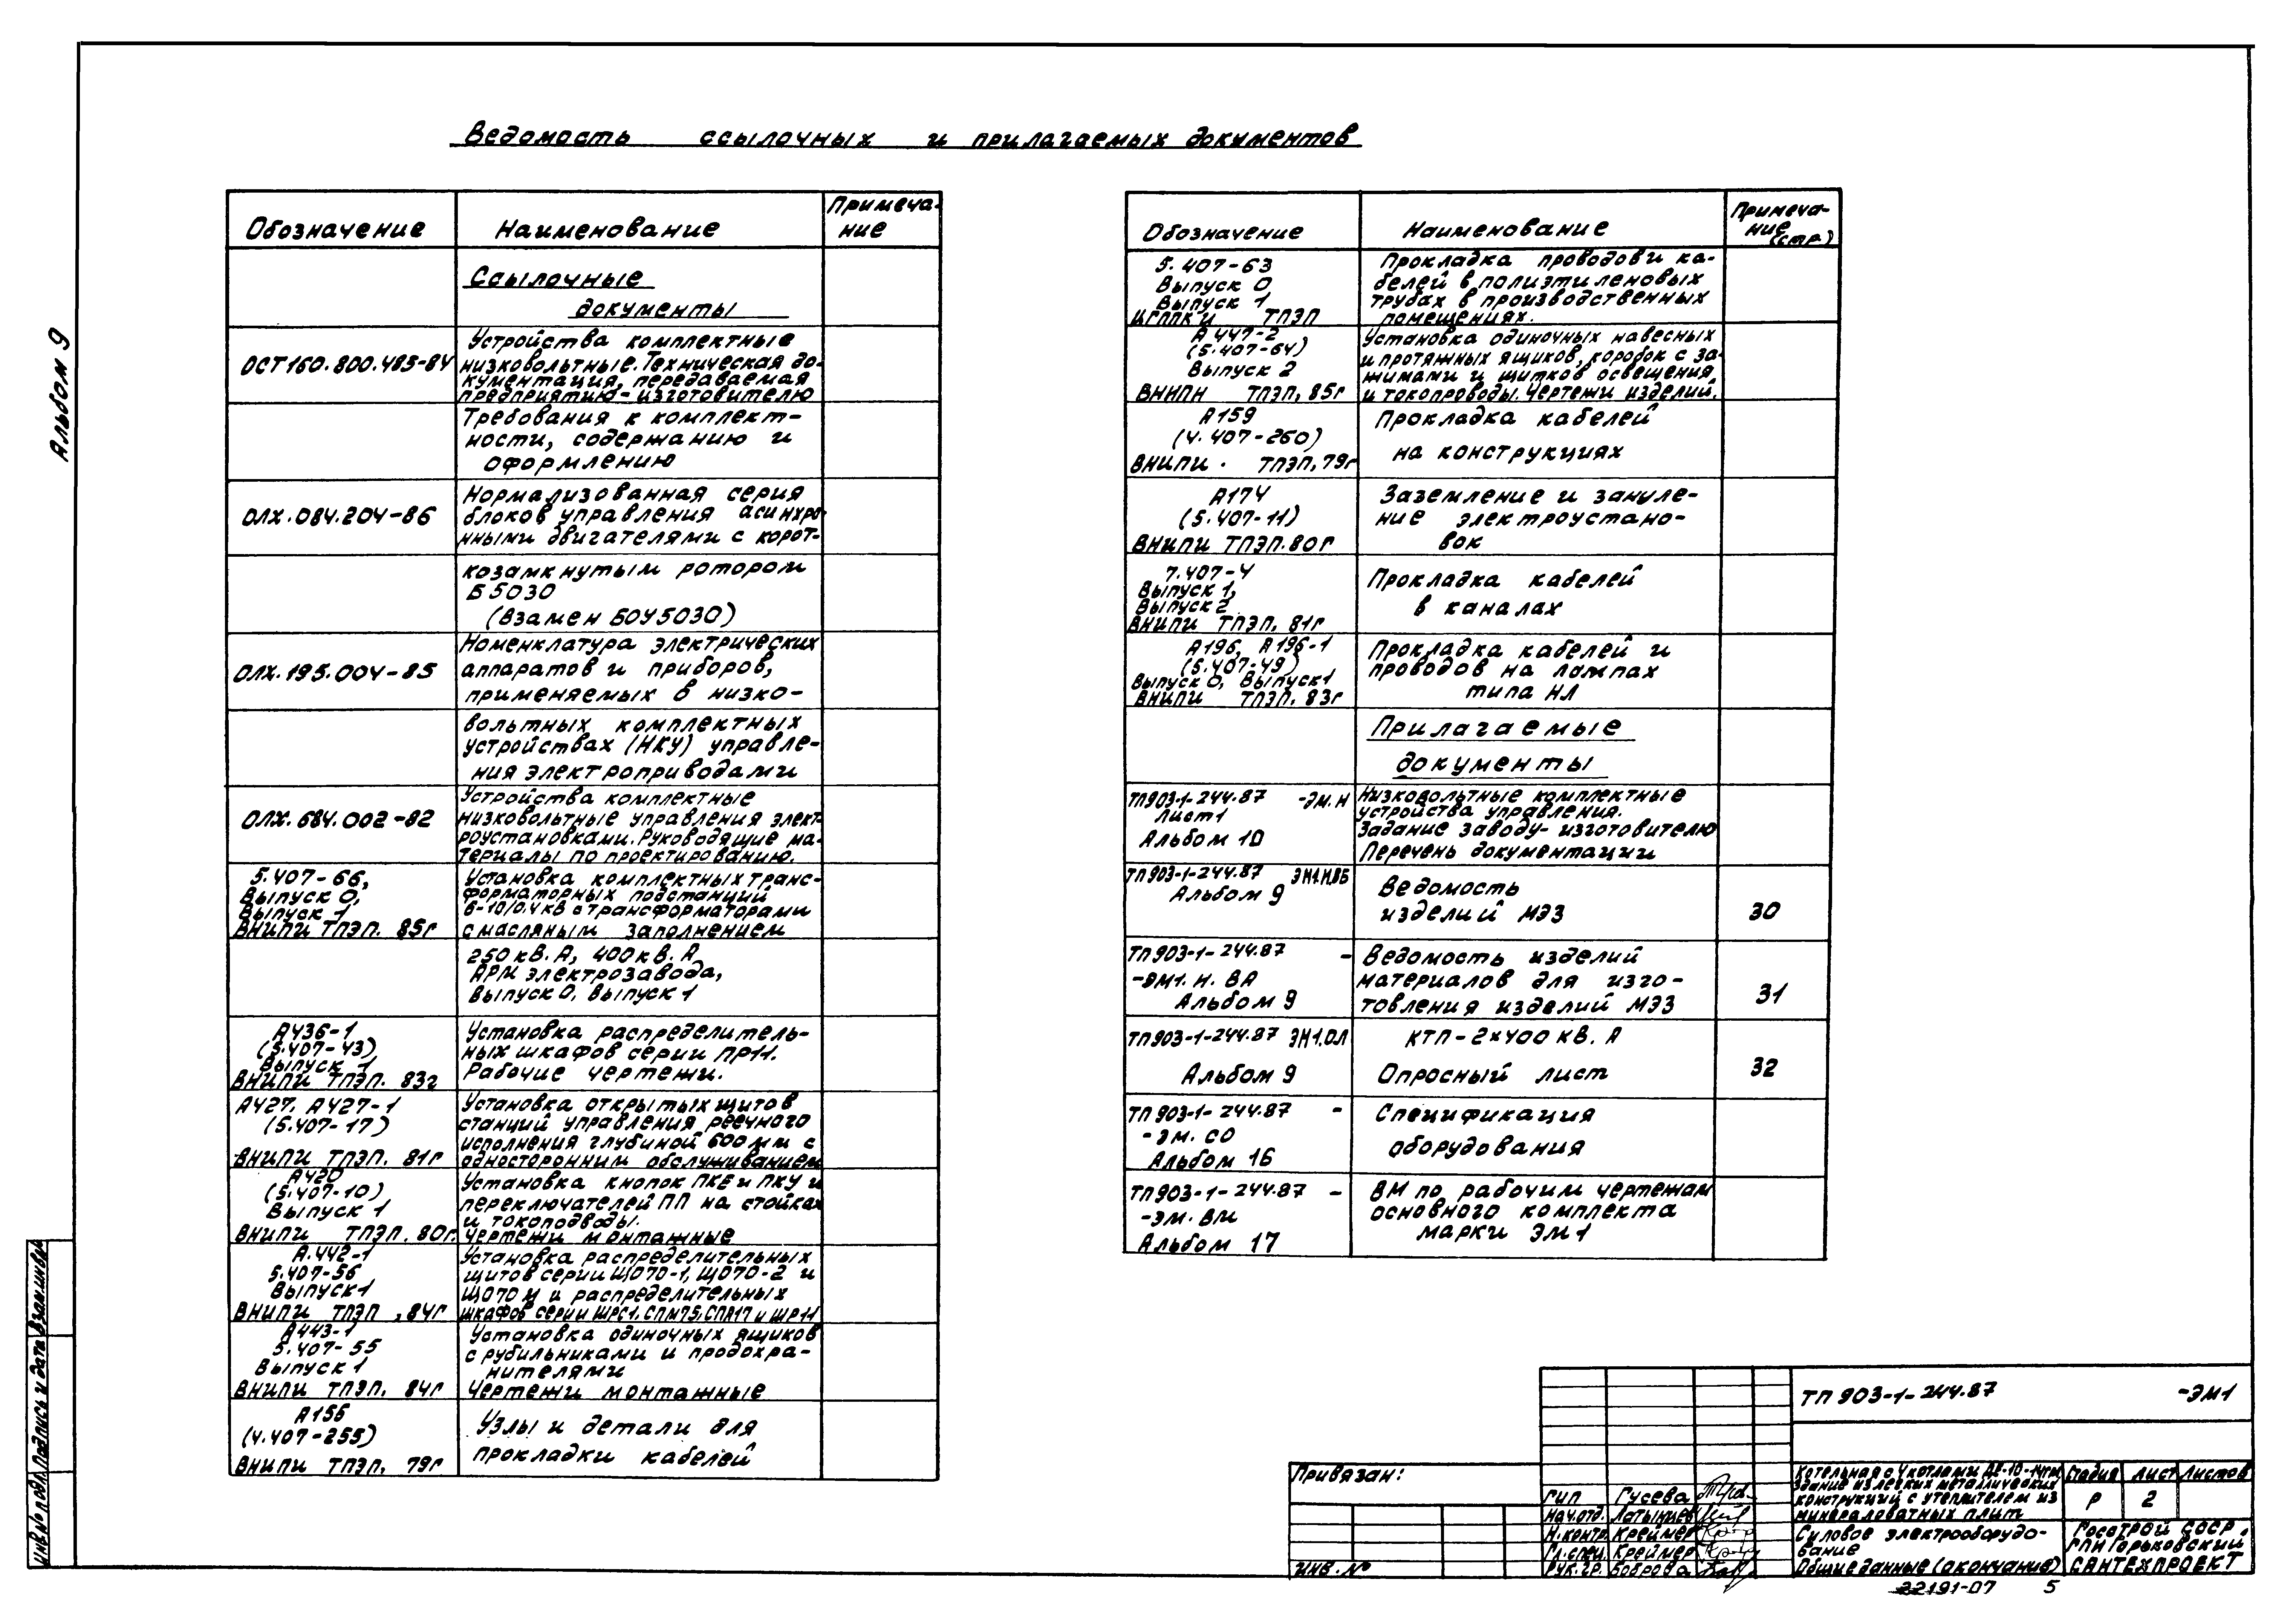 Альбом 9
Ведомость ссылочных и прилагаемых документов
Обозначение
Наименование
Примеча-
ние
Ссылочные
документы
ОСТ160.800.485-84
Устройства комплектные
низковольтные. Техническая до-
кументация, передаваемая
предприятию-изготовителю
Требования к комплект-
ности, содержанию и
оформлению
ОЛХ.084.204-86
Нормализованная серия
блоков управления асинхро-
нными двигателями с корот-
козамкнутым ротором
Б5030
(Взамен БОУ5030)
ОЛХ.195.004-85
Номенклатура электрических
аппаратов и приборов,
применяемых в низко-
вольтных комплектных
устройствах (НКУ) управле-
ния электроприводами
ОЛХ.684.002-82
Устройства комплектные
низковольтные управления элект-
роустановками. Руководящие ма-
териалы по проектированию.
5.407-66,
Выпуск 0,
Выпуск 1
ВНИПИ ТПЭП. 85г
Установка комплектных транс-
форматорных подстанций
6-10/0.4кв с трансформаторами
с масляным заполнением
250 кв.А, 400 кв.А
АРМ электрозавода,
Выпуск 0, Выпуск 1
А436-1
(5.407-43)
Выпуск 1
ВНИПИ ТПЭП. 83г
Установка распределитель-
ных шкафов серии ПР11.
Рабочие чертежи.
А427, А427-1
(5.407-17)
ВНИПИ ТПЭП. 81г
Установка открытых щитов
станций управления реечного
исполнения глубиной 600мм с
односторонним обслуживанием
А420
(5.407-10)
Выпуск 1
ВНИПИ ТПЭП. 80г.
Установка кнопок ПКЕ и ПКУ и
переключателей ПП на стойках
и токоподводы.
Чертежи монтажные
А.442-1
5.407-56
Выпуск 1
ВНИПИ ТПЭП , 84г
Установка распределительных
щитов серии ЩО70-1, ЩО70-2 и
ЩО70М и распределительных
шкафов серии ШРС1, СПМ75, СПА77 и ШР11
А443-1
5.407-55
Выпуск 1
ВНИПИ ТПЭП, 84г
Установка одиночных ящиков
с рубильниками и продохра-
нителями
Чертежи монтажные
А156
(4.407-255)
ВНИПИ ТПЭП, 79г
Узлы и детали для
прокладки кабелей
Обозначение
Наименование
Примеча-
ние
(стр)
5.407-63
Выпуск 0
Выпуск 1
ТПЭП
Прокладка проводов и ка-
белей в полиэтиленовых
трубах в производственных
помещениях.
А447-2
(5.407-64)
Выпуск 2
ВНИПИ ТПЭП, 85г
Установка одиночных навесных
и протяжных ящиков, коробок с за-
жимами и щитков освещения
и токопроводы. Чертежи изделий.
А159
(4.407-260)
ВНИПИ. ТПЭП, 79г
Прокладка кабелей
на конструкциях
А174
(5.407-11)
ВНИПИ ТПЭП.80г
Заземление и зануле-
ние электроустано-
вок
7.407-4
Выпуск 1,
Выпуск 2
ВНИПИ ТПЭП, 81г
Прокладка кабелей
в каналах
А196, А196-1
(5.407-49)
Выпуск 0, Выпуск 1
ВНИПИ ТПЭП. 83г
Прокладка кабелей и
проводов на лампах
типа НЛ
Прилагаемые
документы
ТП903-1-244.87 -ЭМ.Н
Лист1
Альбом 10
Низковольтные комплектные
устройства управления.
Задание заводу-изготовителю
Перечень документации
ТП903-1-244.87 ЭМ1.И.ВБ
Альбом 9
Ведомость
изделий МЭЗ
30
ТП903-1-244.87 -
-ЭМ1.И.ВА
Альбом 9
Ведомость изделий
материалов для изго-
товления изделий МЭЗ
31
ТП903-1-244.87 ЭМ1.ОЛ
Альбом 9
КТП-2×400 кв.А
Опросный лист
32
ТП903-1-244.87 -
-ЭМ.СО
Альбом 16
Спецификация
оборудования
ТП903-1-244.87 -
-ЭМ.ВМ
Альбом 17
ВМ по рабочим чертежам
основного комплекта
марки ЭМ1
Взам.инв.№
Подпись и дата
Инв.№ подл.
Привязан:
Инв.№
ГИП Гусева
Нач.отд. Латынцев
Н.контр. Креймер
Гл.спец. Креймер
Рук.гр. Боброва
ТП903-1-244.87 -ЭМ1
Котельная с 4 котлами ДЕ-10-14гм
Здание из легких металлических
конструкций с утеплителем из
минераловатных плит
Стадия Лист Листов
Р 2
Силовое электрооборудо-
вание
Общие данные (окончание)
Госстрой СССР
ГПИ Горьковский
САНТЕХПРОЕКТ
22191-07 5